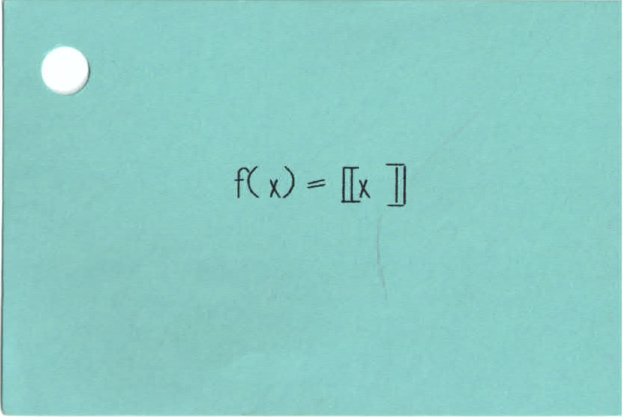 f(x) = ⟦x ⟧